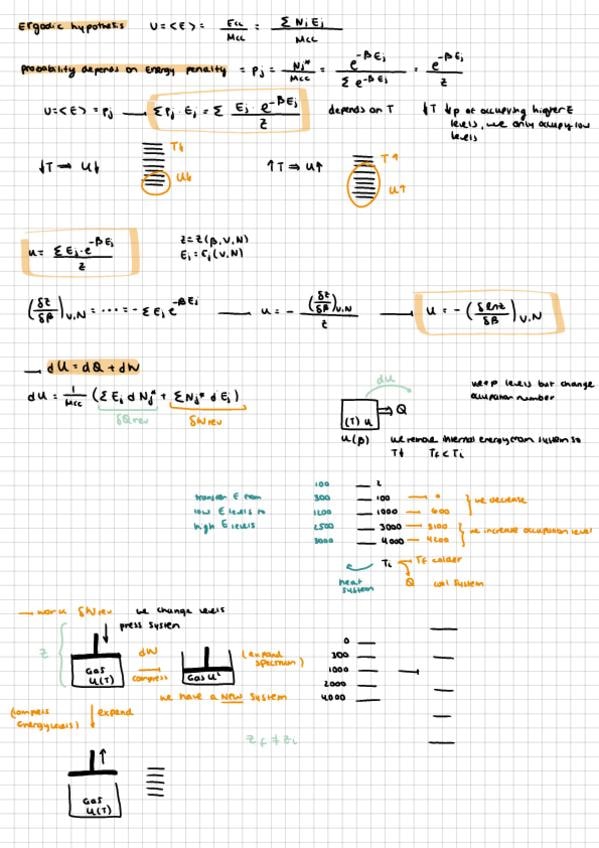 Ergodic hypothesis U=<E> = Ecc/Mcc = ΣNjEj/Mcc
probability depends on Energy penality = Pj = Nj*/Mcc = e^-βEj/Σe^-βEj = e^-βEj/z
U=<E> = Pj → ΣPj·Ej = Σ Ej·e^-βEj/z depends on T ↓T ↓p at occupying higher E
levels, we only occupy low
levels
↓T ⇒ U↓ T↓ U↓ ↑T ⇒ U↑ T↑ U↑
u = ΣEj·e^-βEj/z z=z(β,V,N)
Ej=Ej(V,N)
(δz/δβ)V,N = ···· = -ΣEje^-βEj — u = -(δz/δβ)V,N/z → u = -(δlnz/δβ)V,N
→ dU = dQ + dW
dU = 1/Mcc (ΣEj dNj* + ΣNj* dEj)
δQrev δWrev
dU
keep levels but change
occupation number
(T) u ⇒ Q
U(β) we remove internal energy from system so
T↓ Tf < Ti
transfer E from
low E levels to
high E levels
100 2
300 100 0
1200 1000 600
2500 3000 3100
3000 4000 4200
we decrease
we increase occupation level
Ti Tf colder
heat
system
Q cool system
→ work δWrev we change levels
press system
z
Gas
U(T)
dW
compress
Gas U'
(expand
spectrum)
we have a NEW system
0
300
1000
2000
4000
(compress
Energy levels)
expand
zf ≠ zi
Gas
U(T)